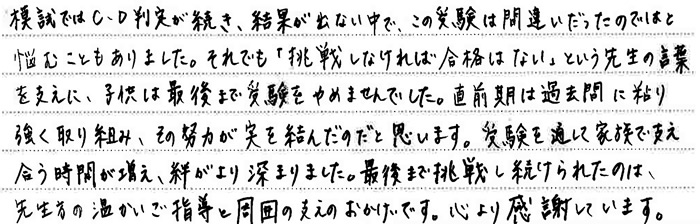 模試ではC・D判定が続き、結果が出ない中で、この受験は間違いだったのではと
悩むこともありました。それでも「挑戦しなければ合格はない」という先生の言葉
を支えに、子供は最後まで受験をやめませんでした。直前期は過去問に粘り
強く取り組み、その努力が実を結んだのだと思います。受験を通して家族で支え
合う時間が増え、絆がより深まりました。最後まで挑戦し続けられたのは、
先生方の温かいご指導と周囲の支えのおかげです。心より感謝しています。